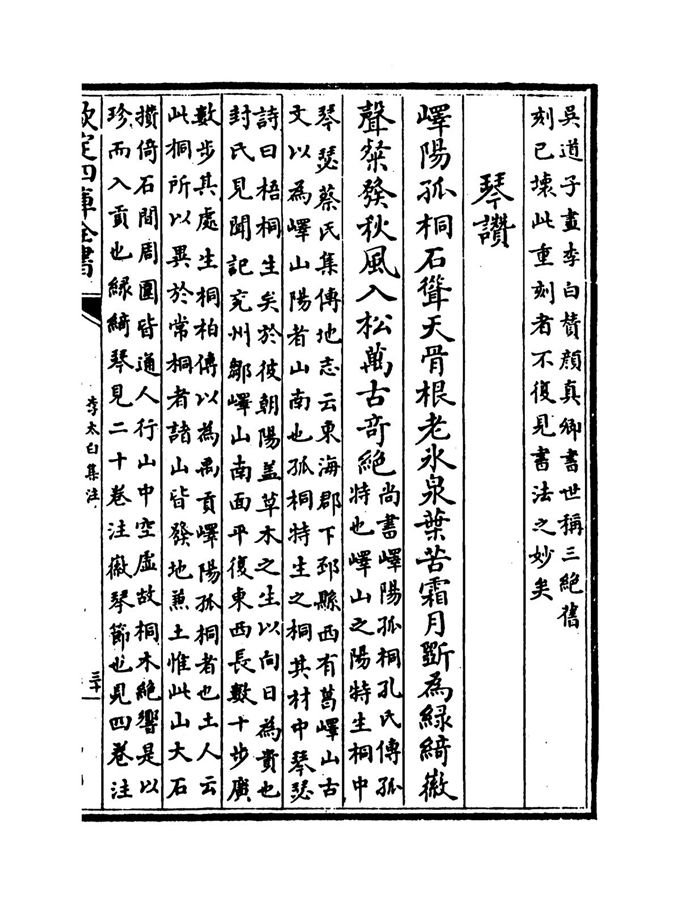 吳道子畫李白賛顔真卿書世稱三絶舊
刻已壊此重刻者不復見書法之妙矣
琴讚
嶧陽孤桐石聳天骨根老氷泉葉苦霜月斵為緑綺徽
聲粲發秋風入松萬古竒絶
尚書嶧陽孤桐孔氏傳孤
特也嶧山之陽特生桐中
琴瑟蔡氏集傳地志云東海郡下邳縣西有葛嶧山古
文以為嶧山陽者山南也孤桐特生之桐其材中琴瑟
詩曰梧桐生矣於彼朝陽盖草木之生以向日為貴也
封氏見聞記兖州鄒嶧山南面平復東西長數十步廣
數步其處生桐柏傳以為禹貢嶧陽孤桐者也土人云
此桐所以異於常桐者諸山皆發地兼土惟此山大石
攅倚石間周圍皆通人行山中空虛故桐木絶響是以
珍而入貢也緑綺琴見二十卷注徽琴節也見四卷注
欽定四庫全書
李太白集注
三十